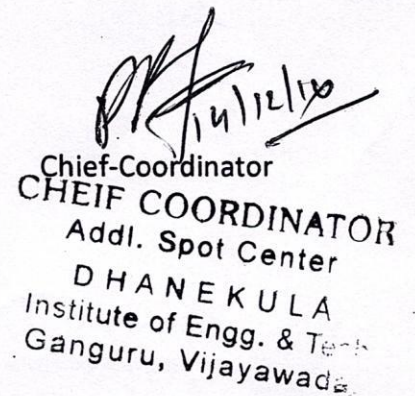 14/12/10
Chief-Coordinator
CHEIF COORDINATOR
Addl. Spot Center
DHANEKULA
Institute of Engg. & Tech
Ganguru, Vijayawada